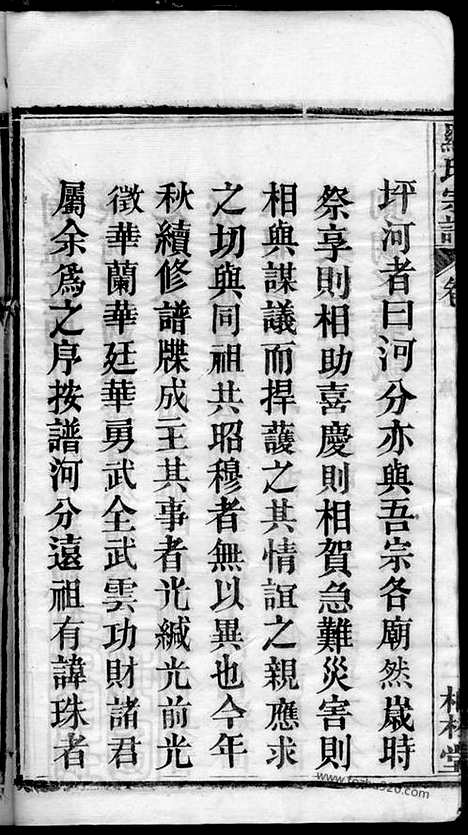 氏宗譜
卷
坪河者曰河分亦與吾宗各廟然歲時
祭享則相助喜慶則相賀急難災害則
相與謀議而捍護之其情誼之親應求
之切與同祖共昭穆者無以異也今年
秋續修譜牒成主其事者光緘光前光
徵華蘭華廷華勇武全武雲功財諸君
屬余爲之序按譜河分遠祖有諱珠者